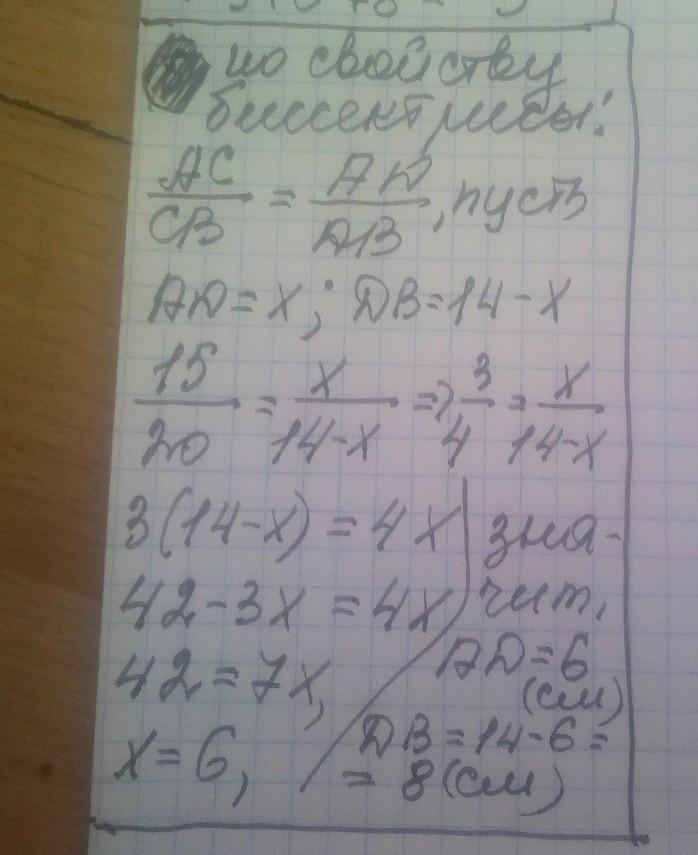 по свойству
биссектрисы:
AC/CB = AD/AB, пусть
AD = x; DB = 14 - x
15/20 = x/(14-x) => 3/4 = x/(14-x)
3(14-x) = 4x
42 - 3x = 4x
42 = 7x,
x = 6,
зна-
чит,
AD = 6
(см)
DB = 14 - 6 =
= 8 (см)